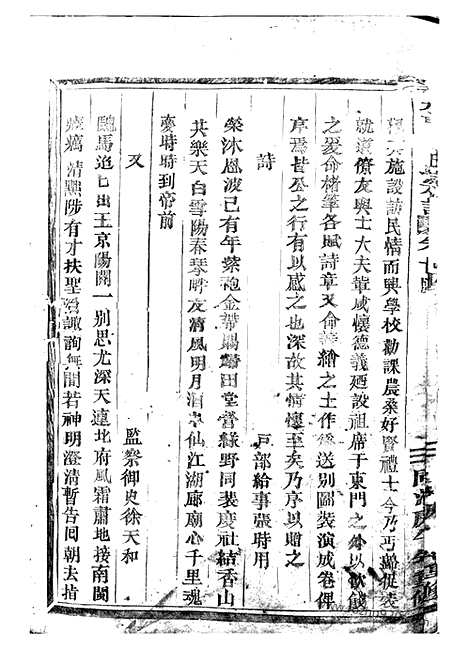 施設訪民情而興學校勸課農桑好賢禮士今乃
就道僚友與士大夫輩咸懷德義廼設祖席于東門之外以飲餞
之爰命楮筆各賦詩章又命繪之士作後送別圖裝演成卷俾
序焉皆
公之行有以感之之深故其情懷至矣乃序以贈之
詩
戶部給事張時用
榮沐恩波已有年紫袍金帶歸田堂營綠野同裴慶社結香山
共樂天白雪陽春琴時友清風明月酒仙江湖廊廟心千里魂
夢時時到帝前
又
監察御史徐天和
驄馬追出王京陽關一別思尤深天連北府風霜肅地接南閩
清熙陟有才扶聖諏詢無間若神明澄清暫告回朝去